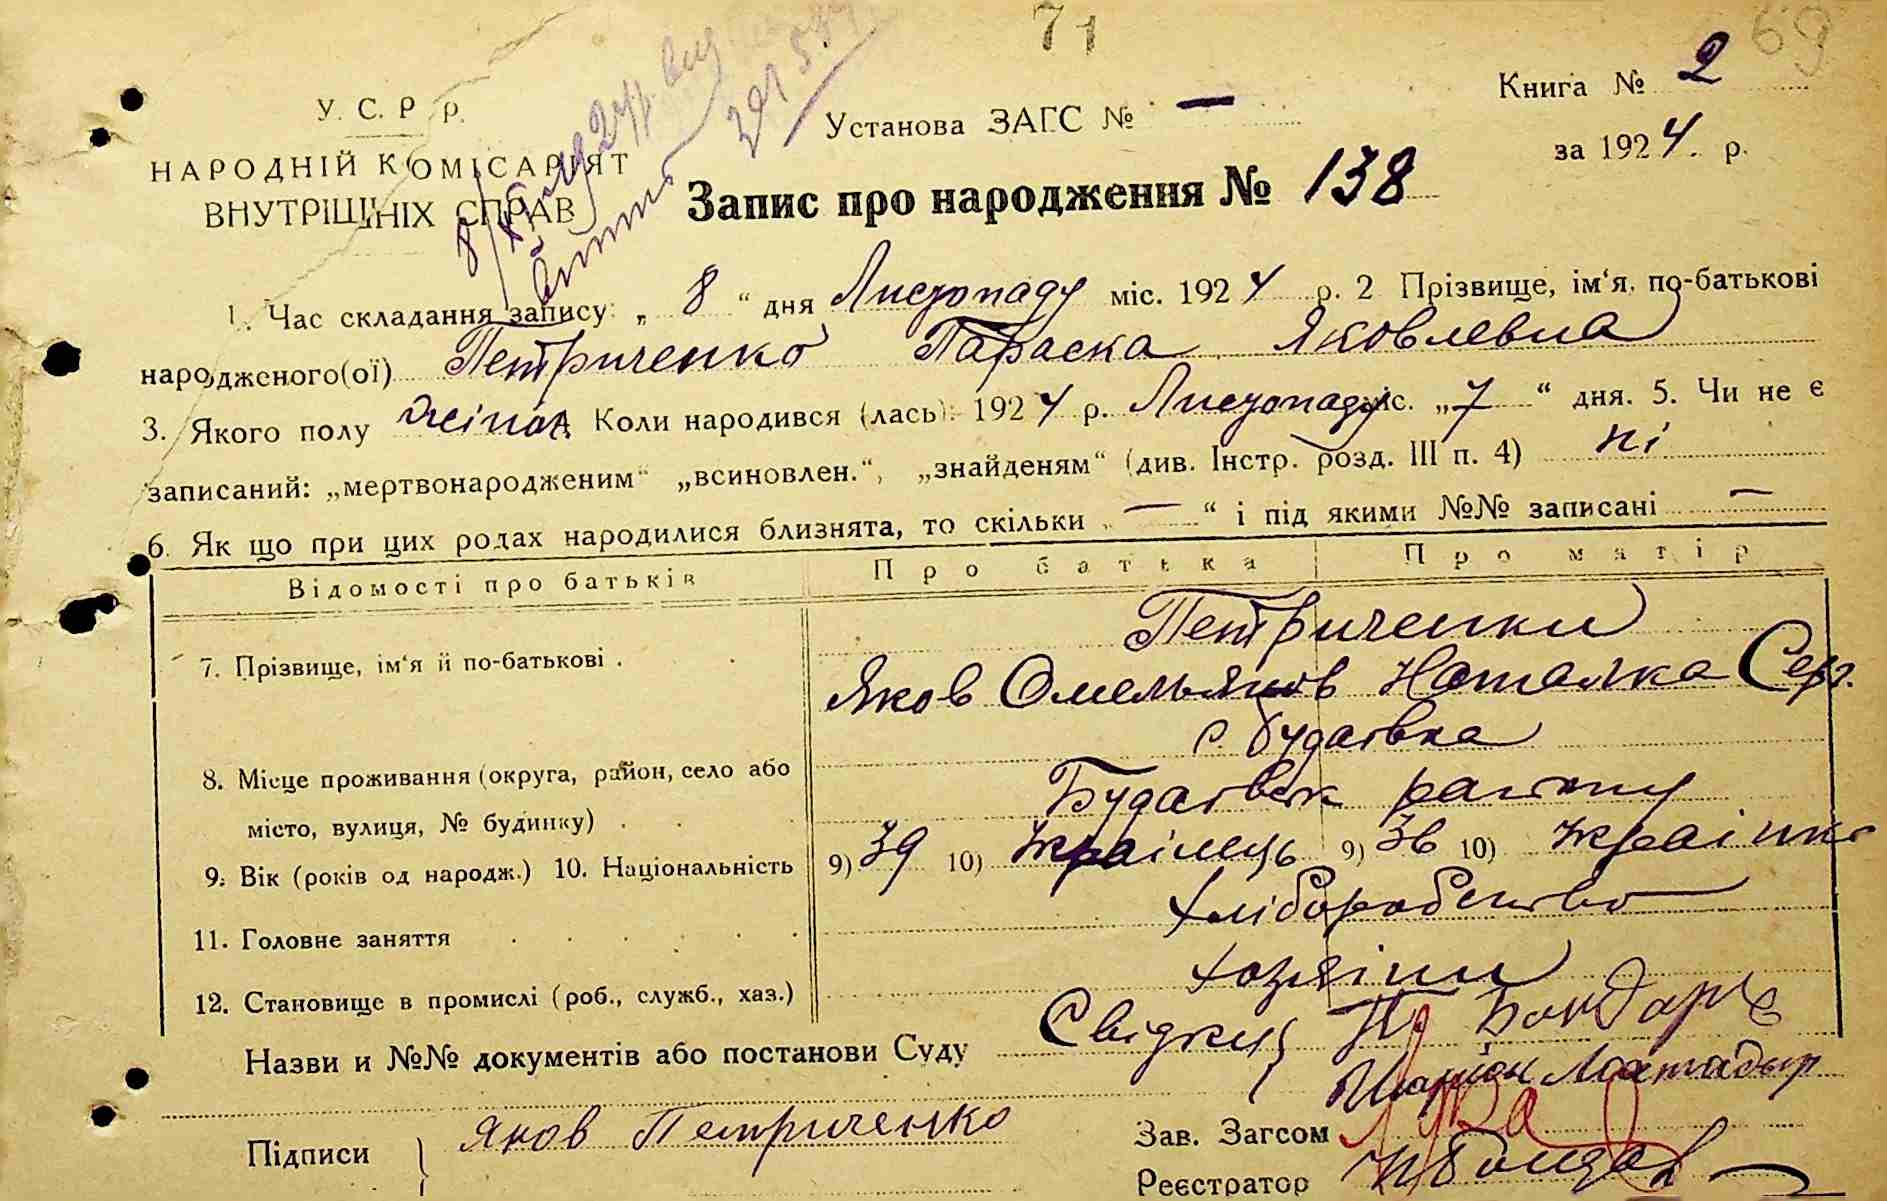 71
69
У. С. Р р.
Установа ЗАГС № —
Книга № 2
НАРОДНІЙ КОМІСАРІЯТ
за 1924. р.
ВНУТРІШНІХ СПРАВ
Запис про народження № 138
1. Час складання запису: „ 8 “ дня Листопаду міс. 1924 р. 2 Прізвище, ім‘я, по-батькові
народженого(ої) Петриченко Параска Яковлевна
3. Якого полу жіноч. Коли народився (лась): 1924 р. Листопаду міс. „7“ дня. 5. Чи не є
записаний: „мертвонародженим“ „всиновлен.“, „знайденям“ (див. Інстр. розд. III п. 4) ні
6. Як що при цих родах народилися близнята, то скільки „—“ і під якими №№ записані —
Відомості про батьків Про батька Про матір
Петриченки
7. Прізвище, ім‘я й по-батькові . Яков Омельянов Наталка Серг.
с. Будаївка
8. Місце проживання (округа, район, село або
місто, вулиця, № будинку) . Будаївськ району
9. Вік (років од народж.) 10. Національність 9) 39 10) Українець 9) 36 10) Українка
11. Головне заняття хліборобство
12. Становище в промислі (роб., служб., хаз.) хозяїни
Назви и №№ документів або постанови Суду Свідки П Бондар
Підписи } Яков Петриченко
Зав. Загсом
Реєстратор